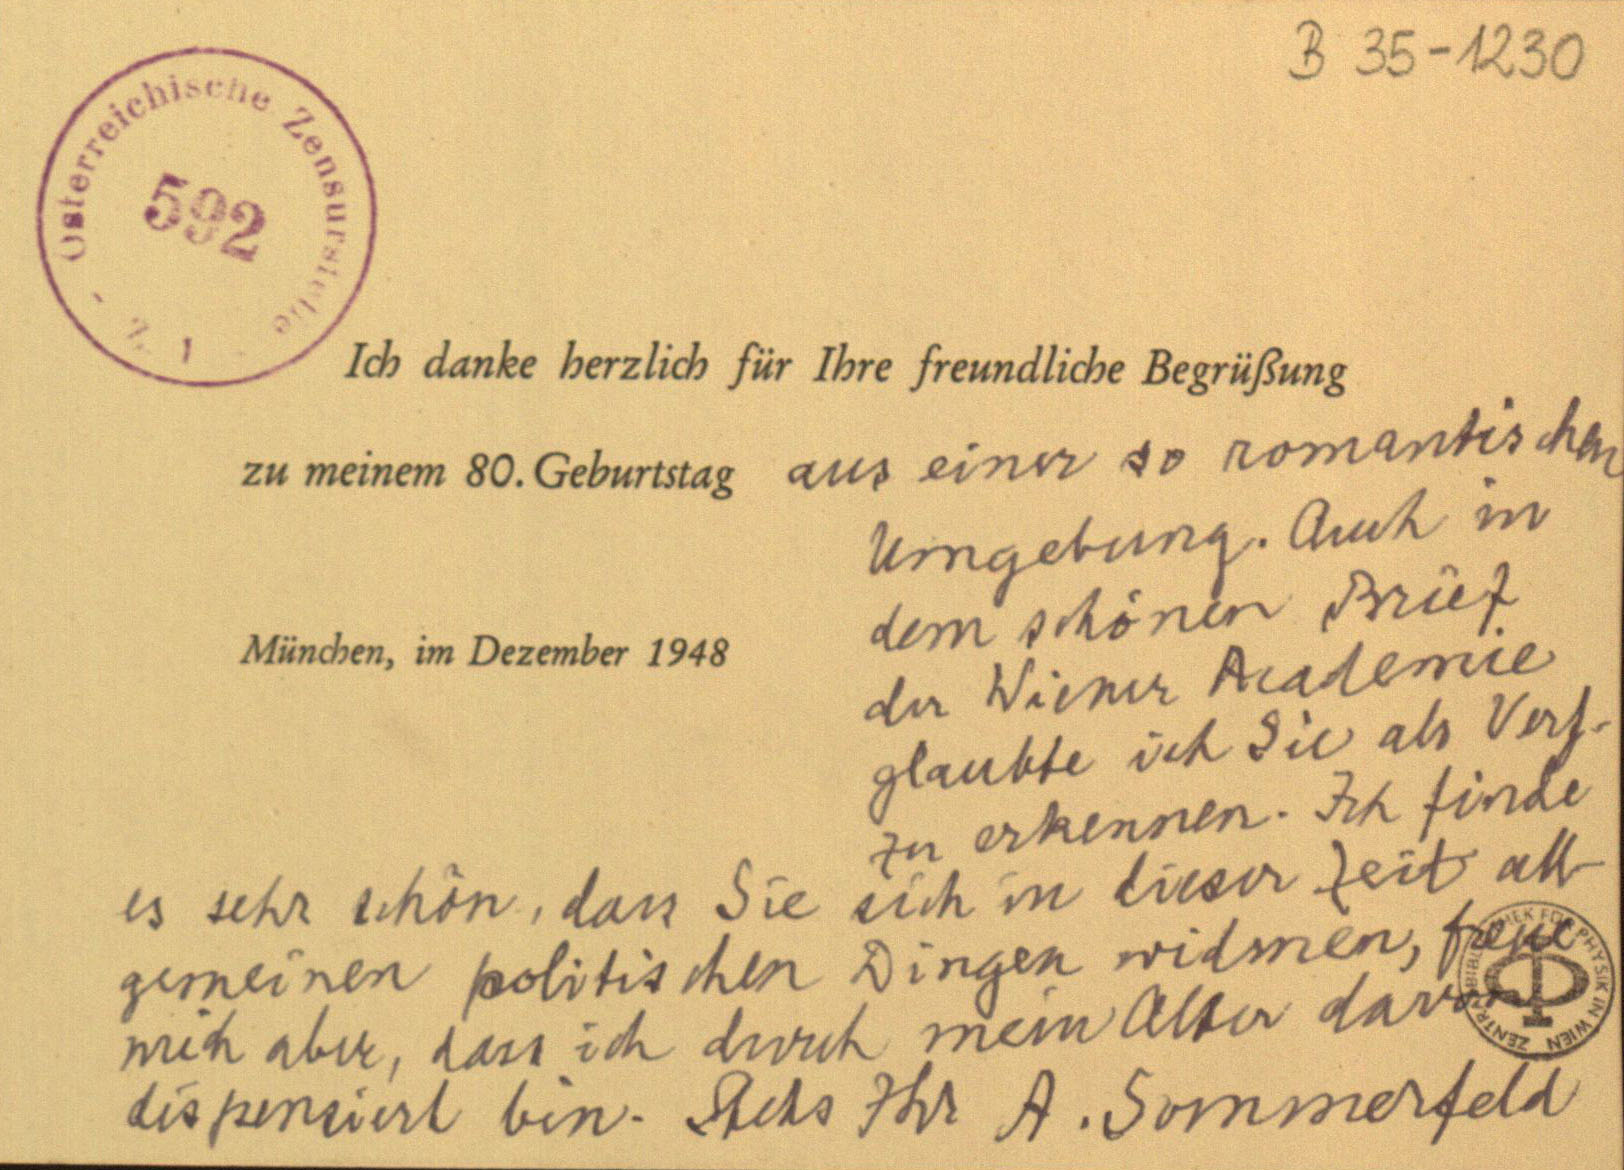 B 35-1230
Österreichische Zensurstelle
592
Z. 1
Ich danke herzlich für Ihre freundliche Begrüßung
zu meinem 80. Geburtstag aus einer so romantischen
Umgebung. Auch in
dem schönen Brief
der Wiener Academie
glaubte ich Sie als Verf.
zu erkennen. Ich finde
es sehr schön, dass Sie sich in dieser Zeit all-
gemeinen politischen Dingen widmen, freue
mich aber, dass ich durch mein Alter davon
dispensiert bin. Stets Ihr A. Sommerfeld
München, im Dezember 1948
ZENTRALBIBLIOTHEK FÜR PHYSIK IN WIEN